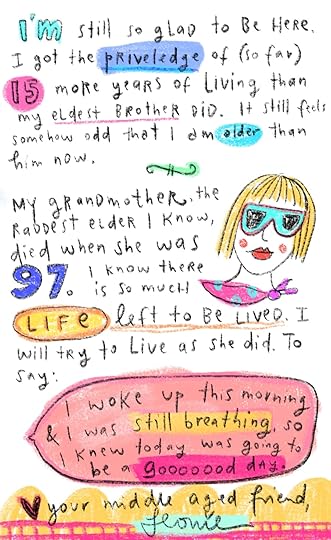 I'm still so glad to Be Here.
I got the priveledge of (so far)
15 more years of Living than
my eldest Brother Did. It still feels
somehow odd that I am older than
him now.
My grandmother, the
Raddest elder I Know,
died when she was
97. I know there
is so much
LIFE left to be lived. I
will try to Live as she did. To
say:
I woke up this morning
& I was still breathing, so
I knew today was going to
be a gooooood day.
your middle aged friend,
Leonie